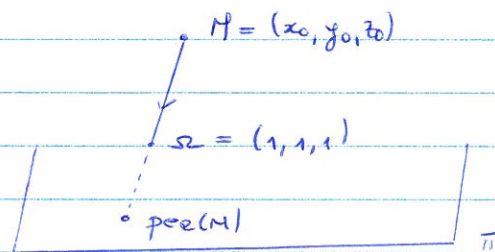 M = (x₀, y₀, z₀)
Ω = (1, 1, 1)
per(M)
π